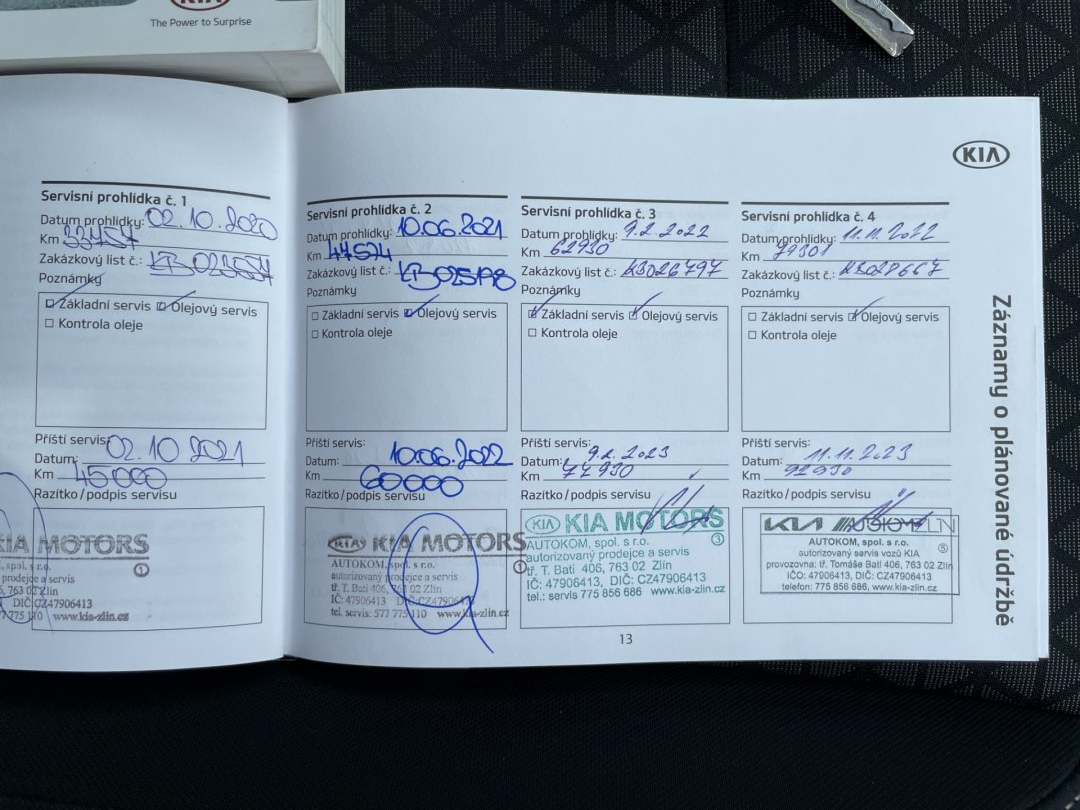 KIA
The Power to Surprise
KIA
Záznamy o plánované údržbě
Servisní prohlídka č. 1
Datum prohlídky: 02.10.2020
Km 33757
Zakázkový list č.:
Poznámky
Základní servis Olejový servis
Kontrola oleje
Příští servis:
Datum: 02.10 2021
Km 45000
Razítko/podpis servisu
KIA MOTORS
, spol. s r.o.
prodejce a servis
6, 763 02 Zlín
DIČ:CZ47906413
77 775 110 www.kia-zlin.cz
Servisní prohlídka č. 2
Datum prohlídky: 10.06.2021
Km 47574
Zakázkový list č.:
Poznámky
Základní servis Olejový servis
Kontrola oleje
Příští servis:
Datum: 10.06.2022
Km 60000
Razítko/podpis servisu
KIA KIA MOTORS
AUTOKOM, spol. s r.o.
autorizovaný prodejce a servis
tř. T. Bati 406, 763 02 Zlín
IČ: 47906413 DIČ:CZ47906413
tel. servis: 577 775 110 www.kia-zlin.cz
1
Servisní prohlídka č. 3
Datum prohlídky: 9.2.2022
Km 62930
Zakázkový list č.: KB026797
Poznámky
Základní servis Olejový servis
Kontrola oleje
Příští servis:
Datum: 9.2.2023
Km 77930
Razítko/podpis servisu
KIA KIA MOTORS
3
AUTOKOM, spol. s r.o.
autorizovaný prodejce a servis
tř. T. Bati 406, 763 02 Zlín
IČ: 47906413, DIČ: CZ47906413
tel.: servis 775 856 686 www.kia-zlin.cz
Servisní prohlídka č. 4
Datum prohlídky: 11.11.2022
Km 79301
Zakázkový list č.: KB028667
Poznámky
Základní servis Olejový servis
Kontrola oleje
Příští servis:
Datum: 11.11.2023
Km 92930
Razítko/podpis servisu
KIA AUTOKOM ZLIN
AUTOKOM, spol. s r.o.
autorizovaný servis vozů KIA
5
provozovna: tř. Tomáše Bati 406, 763 02 Zlín
IČO: 47906413, DIČ: CZ47906413
telefon: 775 856 686, www.kia-zlin.cz
13